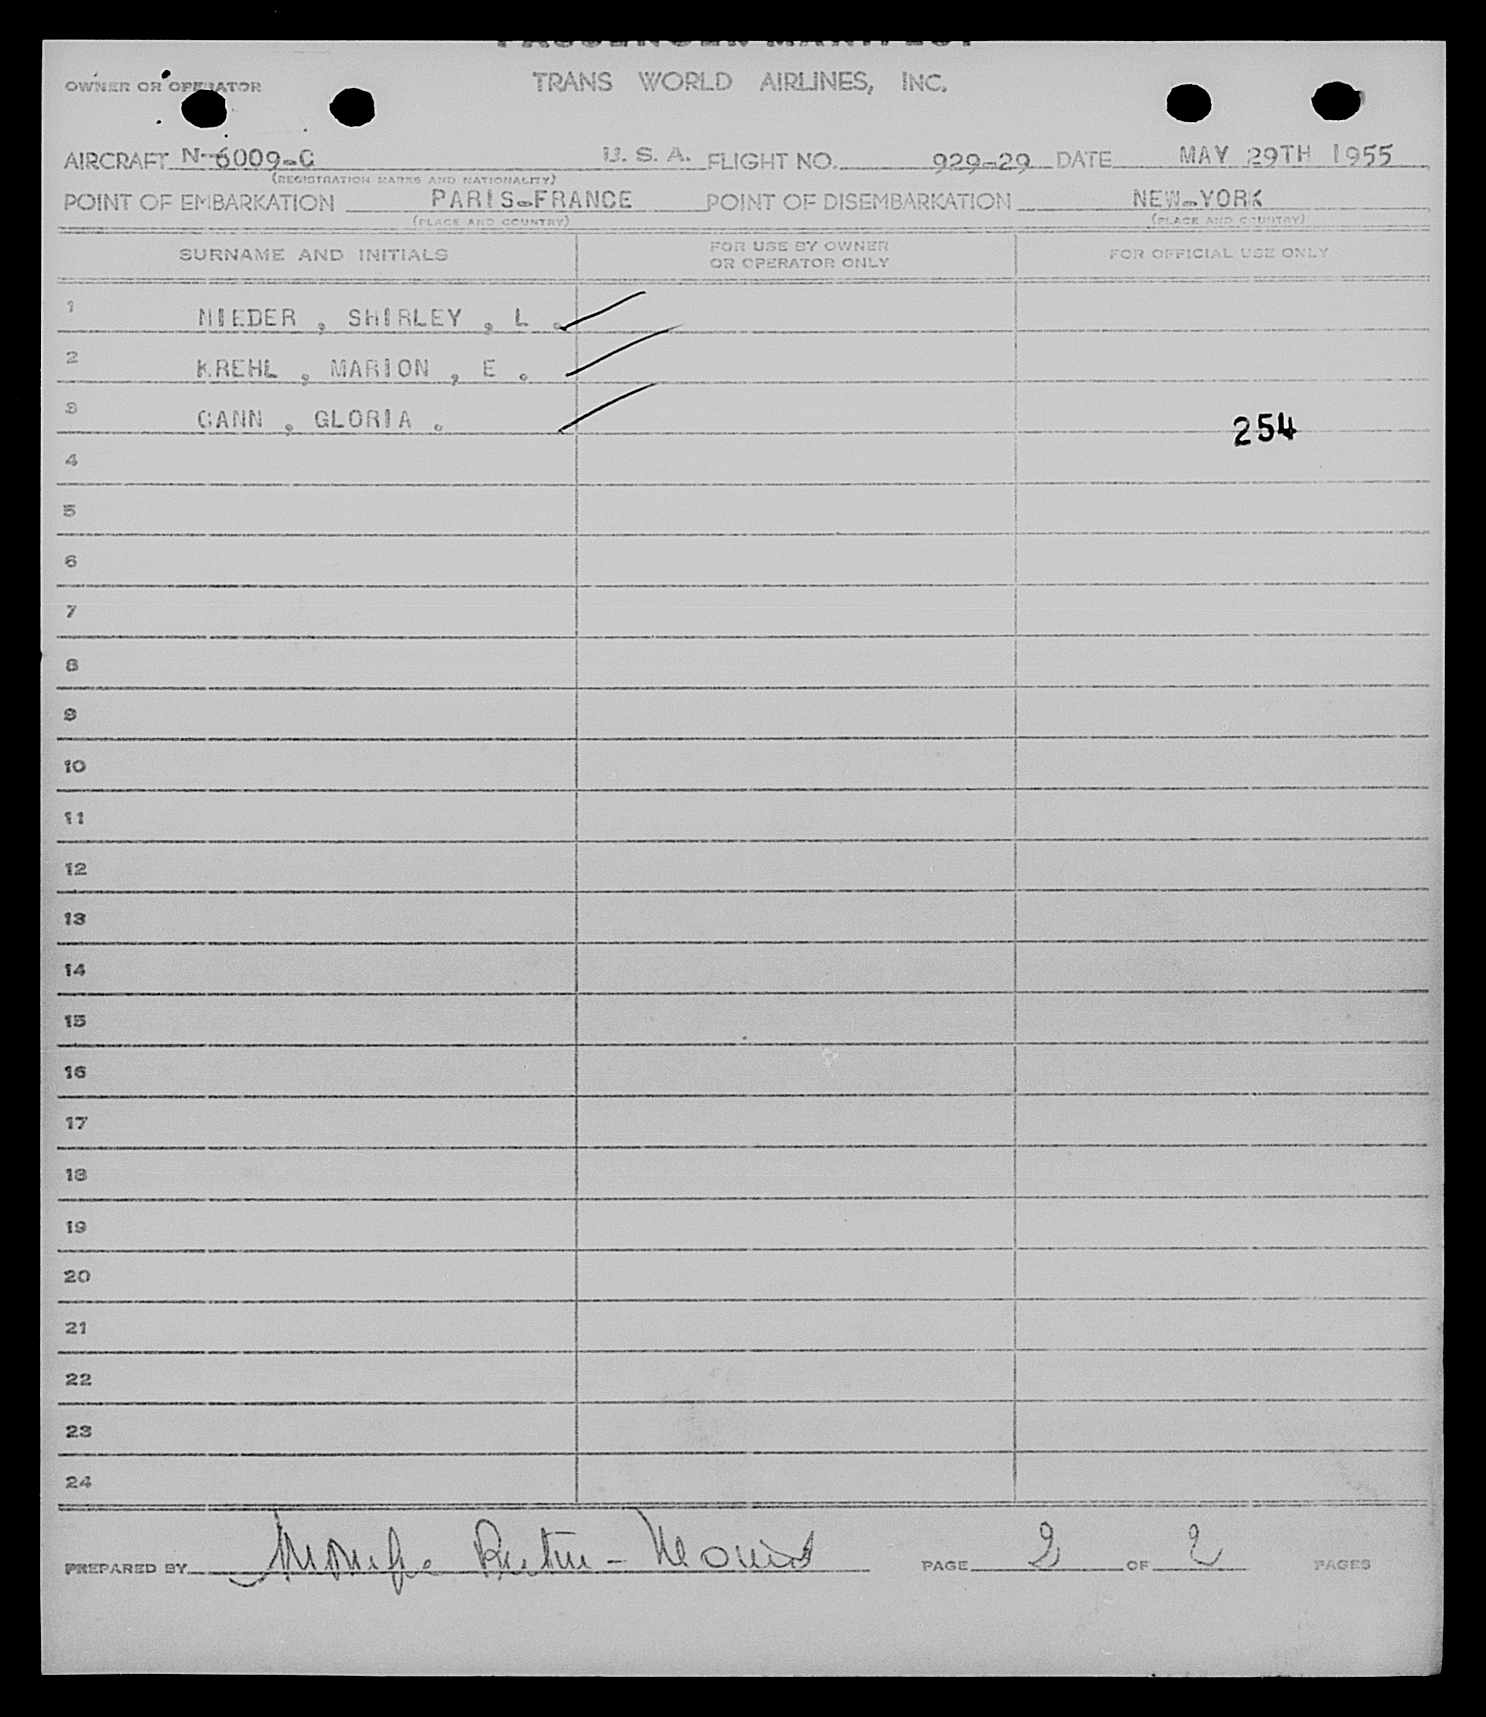 PASSENGER MANIFEST
OWNER OR OPERATOR TRANS WORLD AIRLINES, INC.
AIRCRAFT N-6009-C U. S. A. FLIGHT NO. 929-29 DATE MAY 29TH 1955
(REGISTRATION MARKS AND NATIONALITY)
POINT OF EMBARKATION PARIS-FRANCE POINT OF DISEMBARKATION NEW-YORK
(PLACE AND COUNTRY) (PLACE AND COUNTRY)
SURNAME AND INITIALS FOR USE BY OWNER OR OPERATOR ONLY FOR OFFICIAL USE ONLY
1 NIEDER , SHIRLEY , L .
2 KREHL , MARION , E .
3 CANN , GLORIA .
254
4
5
6
7
8
9
10
11
12
13
14
15
16
17
18
19
20
21
22
23
24
PREPARED BY PAGE 2 OF 2 PAGES